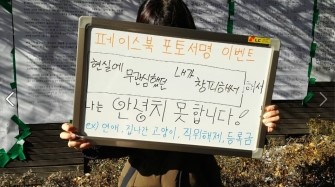 페이스북 포토서명 이벤트
현실에 무관심했던 내가 창피해서
나는 안녕치 못합니다!
ex) 연애, 집나간 고양이, 직위해제, 등록금